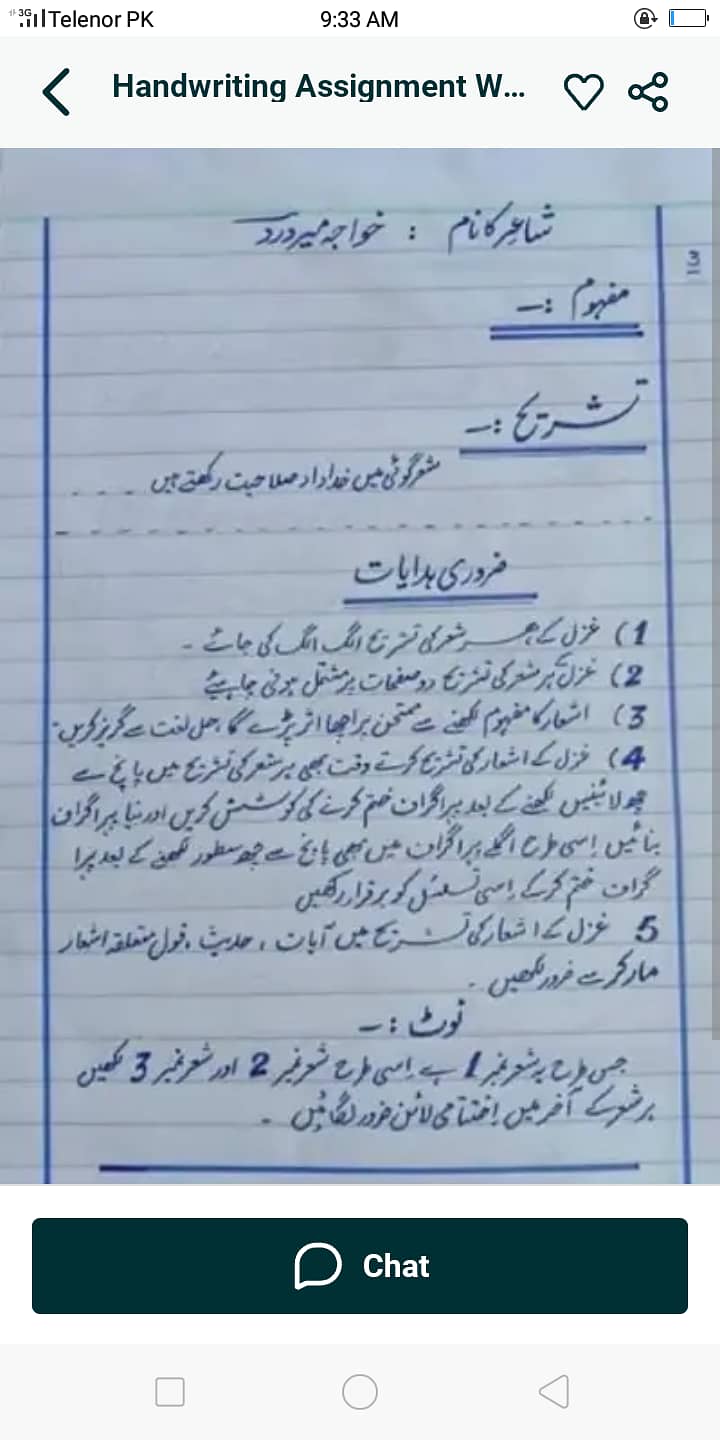 3G Telenor PK 9:33 AM
Handwriting Assignment W...
شاعر کا نام : خواجہ میر درد
13
مفہوم :-
تشریح :-
شعر گوئی میں خداداد صلاحیت رکھتے ہیں ....
ضروری ہدایات
1) غزل کے ہر شعر کی تشریح الگ الگ کی جائے -
2) غزل کے ہر شعر کی تشریح دو صفحات پر مشتمل ہونی چاہیئے
3) اشعار کا مفہوم لکھنے سے ممتحن پر اچھا اثر پڑے گا، حل لغت سے گریز کریں-
4) غزل کے اشعار کی تشریح کرتے وقت بھی ہر شعر کی تشریح میں پانچ سے
چھ لائنیں لکھنے کے بعد پیراگراف ختم کرنے کی کوشش کریں اور نیا پیراگراف
بنائیں اسی طرح اگلے پیراگراف میں بھی پانچ سے چھ سطور لکھنے کے بعد پیرا
گراف ختم کرکے اسی تسلسل کو برقرار رکھیں
5 غزل کے اشعار کی تشریح میں آیات ، حدیث ، قول متعلقہ اشعار
مارکر سے ضرور لکھیں -
نوٹ :-
جس طرح یہ شعر نمبر 1 ہے اسی طرح شعر نمبر 2 اور شعر نمبر 3 لکھیں
ہر شعر کے آخر میں اختتامی لائن ضرور لگائیں -
Chat